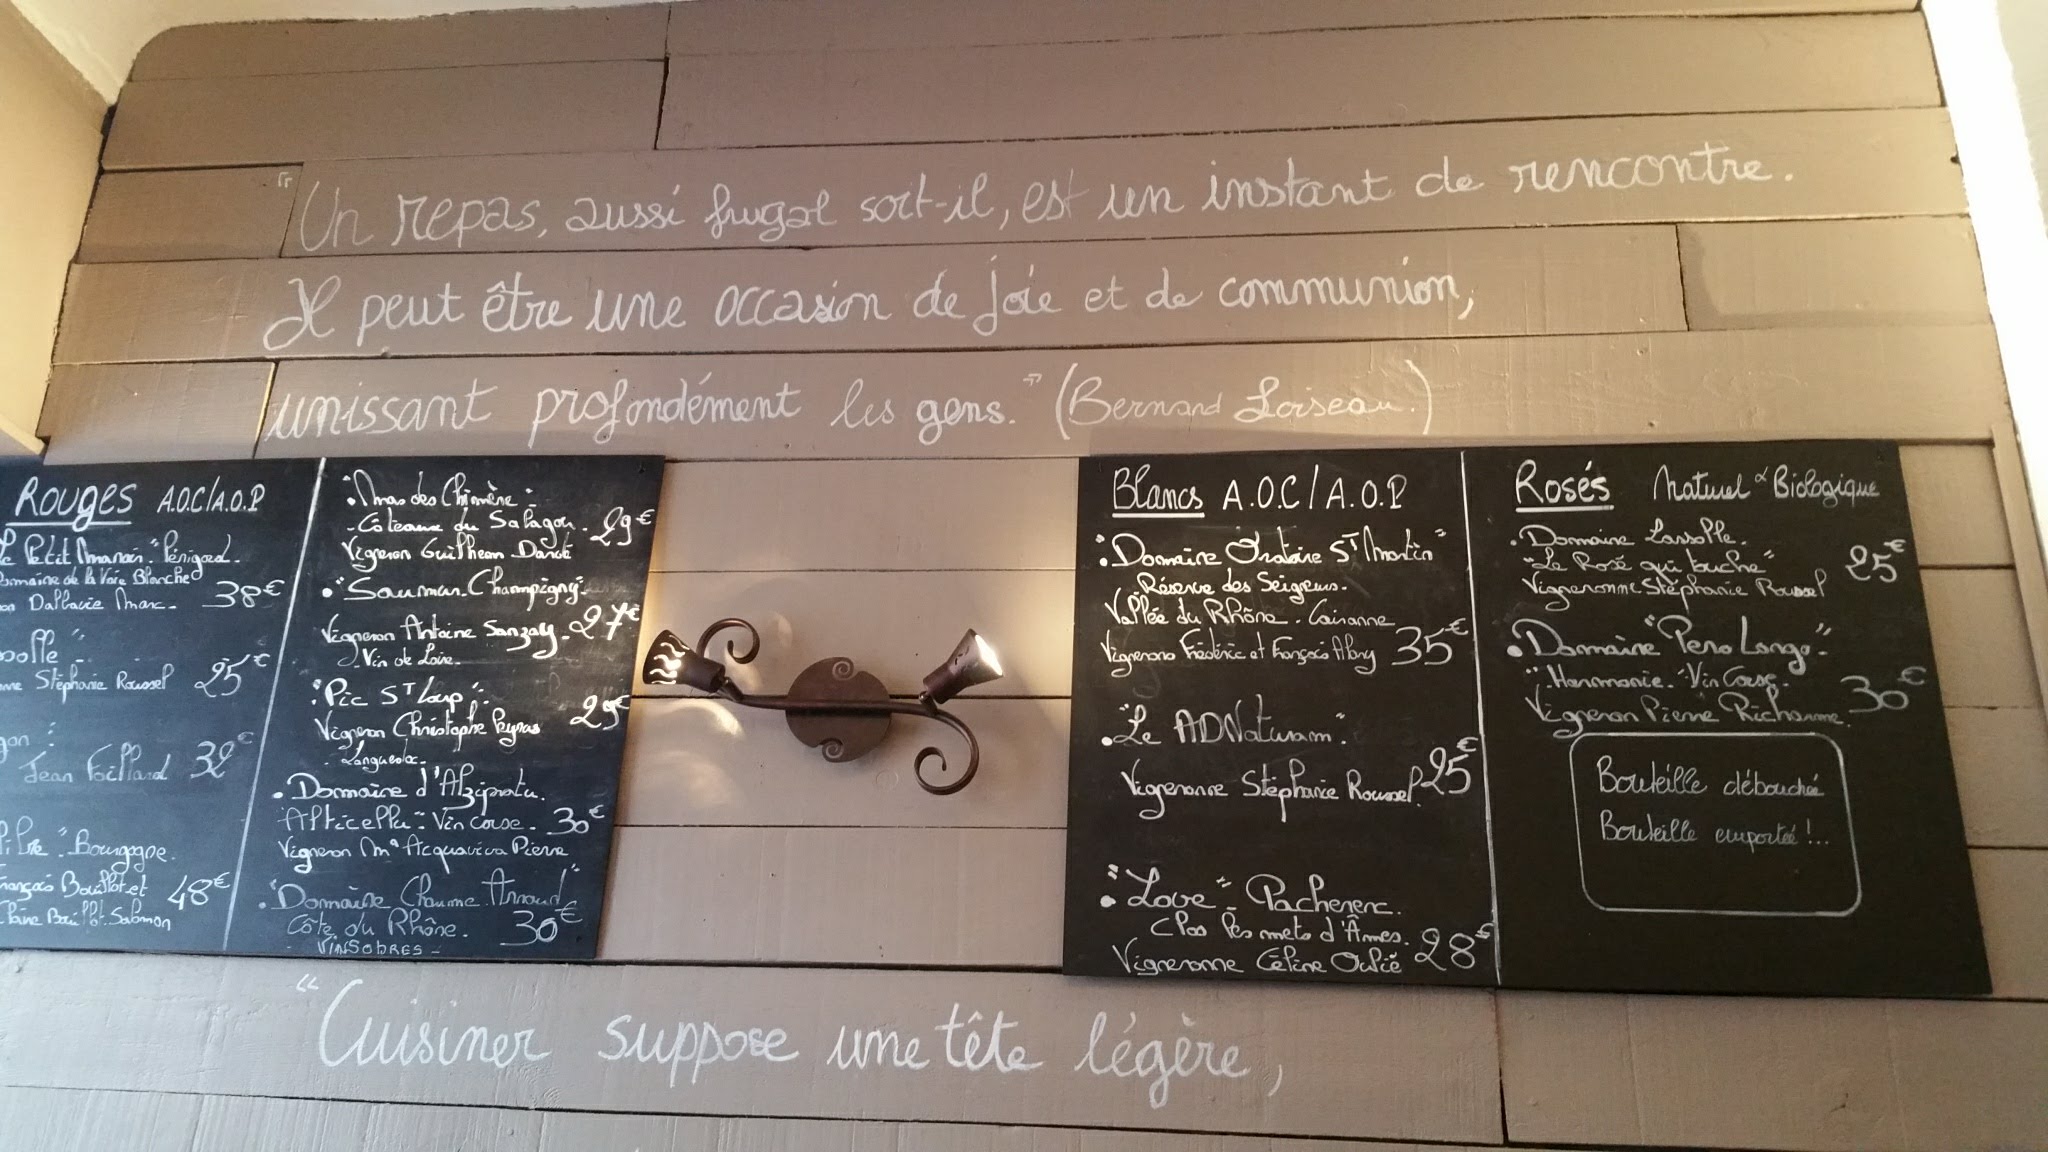 "Un repas, aussi frugal soit-il, est un instant de rencontre.
Il peut être une occasion de joie et de communion,
unissant profondément les gens." (Bernard Loiseau.)
Rouges A.O.C/A.O.P
Le Petit Manoir." Périgord.
Domaine de la Voie Blanche
Dallavie Marc. 38€
Stéphanie Roussel 25€
Jean Foillard 32€
Bourgogne.
François Bouillot et 48€
Salomon
."Mas des Chimère"
- Côteaux du Salagou. 29€
Vigneron Guilhem Dardé
• "Saumur Champigny"
Vigneron Antoine Sanzay. 27€
- Vin de Loire.
"Pic St Loup".
Vigneron Christophe Peyrus 29€
- Languedoc.
• Domaine d'Alzipratu.
Vin Corse. 30€
Vigneron Mr Acquaviva Pierre
• "Domaine Chaume Arnaud"
Côte du Rhône. 30€
- VINSOBRES -
Blancs A.O.C/A.O.P
• "Domaine Oratoire St Martin"
Réserve des Seigneurs.
Vallée du Rhône. Cairanne
Vignerons Frédéric et François Alary 35€
• "Le ADNaturam".
Vigneronne Stéphanie Roussel. 25€
• "Love" - Pacherenc.
Clos les mets d'Âmes.
Vigneronne Céline Oulié 28€
Rosés Naturel & Biologique
• Domaine Lassolle.
"Le Rosé qui touche" 25€
Vigneronne Stéphanie Roussel
• Domaine "Pero Longo".
"Harmonie." Vin Corse. 30€
Vigneron Pierre Richarme.
Bouteille débouchée
Bouteille emportée !...
"Cuisiner suppose une tête légère,